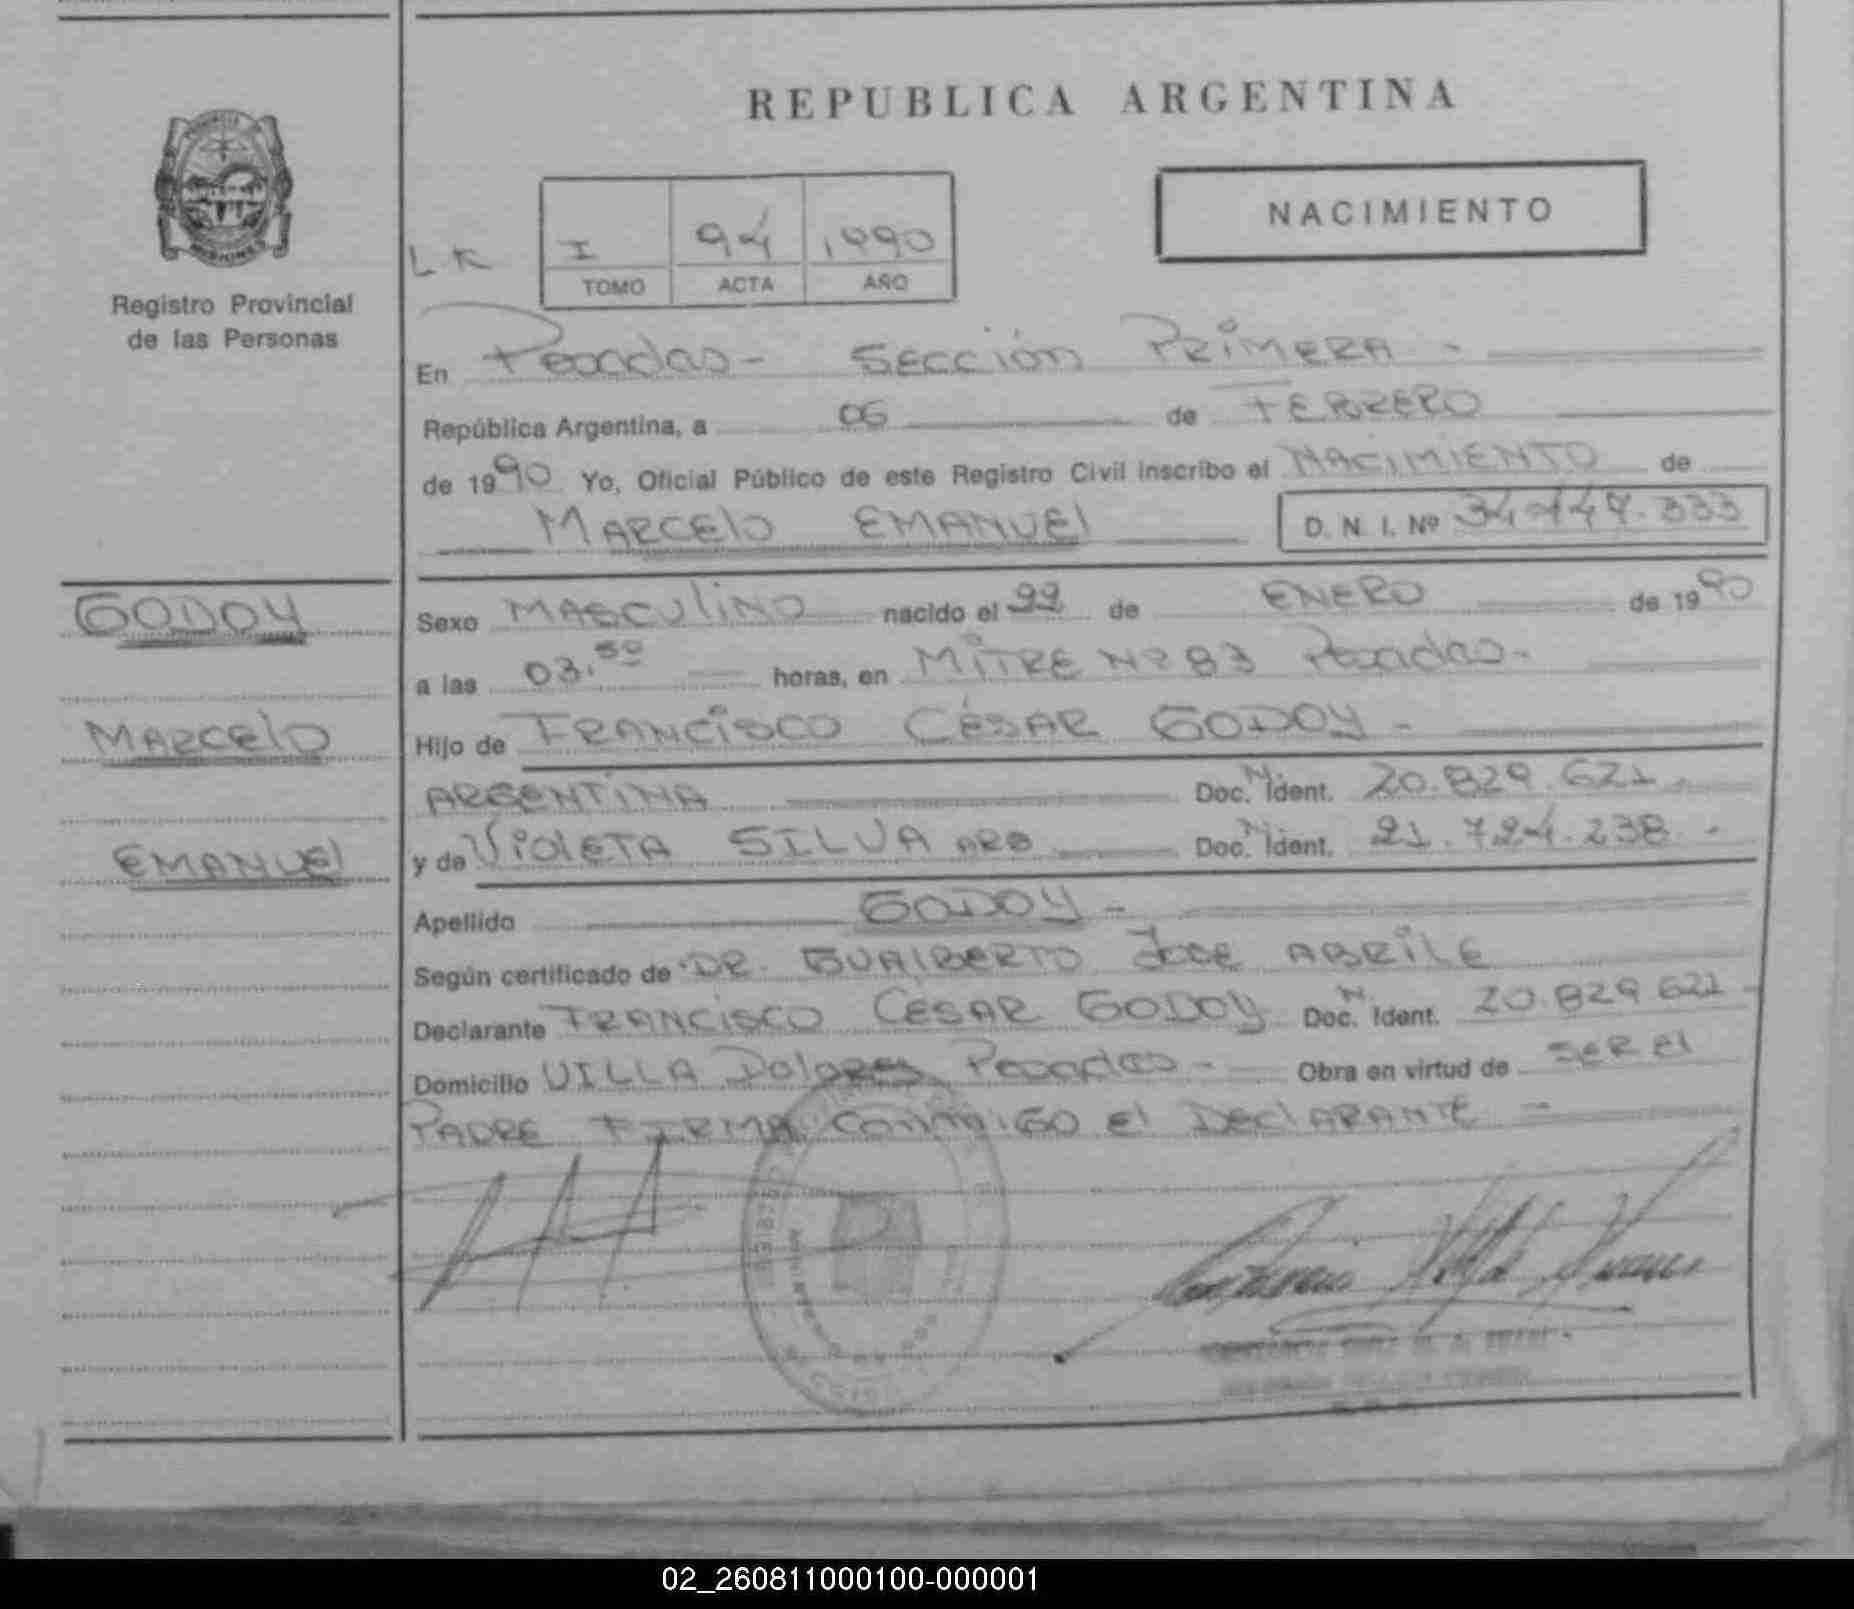 REPUBLICA ARGENTINA
NACIMIENTO
Registro Provincial
de las Personas
LR
I 94 1990
TOMO ACTA AÑO
En Posadas - SECCIÓN PRIMERA -
República Argentina, a 06 de FEBRERO
de 1990 Yo, Oficial Público de este Registro Civil inscribo el NACIMIENTO de
MARCElO EMANUEl D. N. I. Nº
GODOY
MARCElO
EMANUEl
Sexo MASCUliNO nacido el 22 de ENERO de 1990
a las 03.50 horas, en MITRE Nº 83 Posadas.
Hijo de FRANCISCO CÉSAR GODOY -
ARGENTINA Doc. N. Ident. 20.829.621.
y de VIOlETA SILVA ARG Doc. N. Ident. 21.724.238. -
Apellido GODOY -
Según certificado de DR. GUAlBERTO JOSE ABRILE
Declarante FRANCISCO CÉSAR GODOY Doc. N. Ident. 20.829.621 -
Domicilio VILLA Dolores Posadas - Obra en virtud de SER El
PADRE FIRMA CONMIGO El DEClARANTE -
02_260811000100-000001